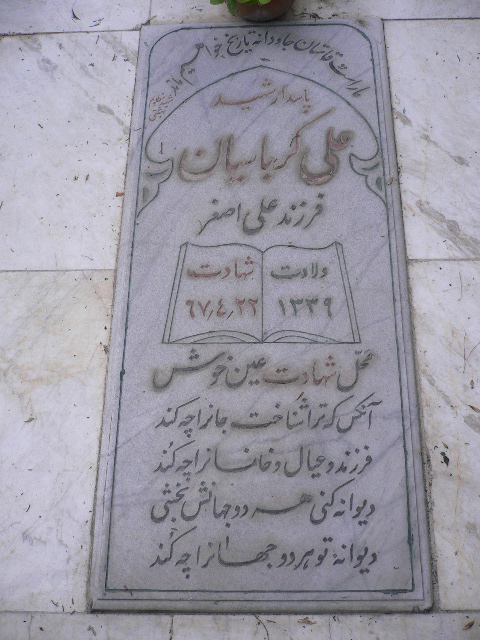 ما راست قامتان جاودانه تاریخ خواهیم ماند
پاسدار شهید
علی کرباسیان
فرزند علی اصغر
ولادت شهادت
۱۳۳۹ ۶۷٫۴٫۲۲
محل شهادت عین خوش
آنکس که ترا شناخت جانرا چه کند
فرزند و عیال و خانمانرا چه کند
دیوانه کنی هر دو جهانش بخشی
دیوانهٔ تو هر دو جهانرا چه کند